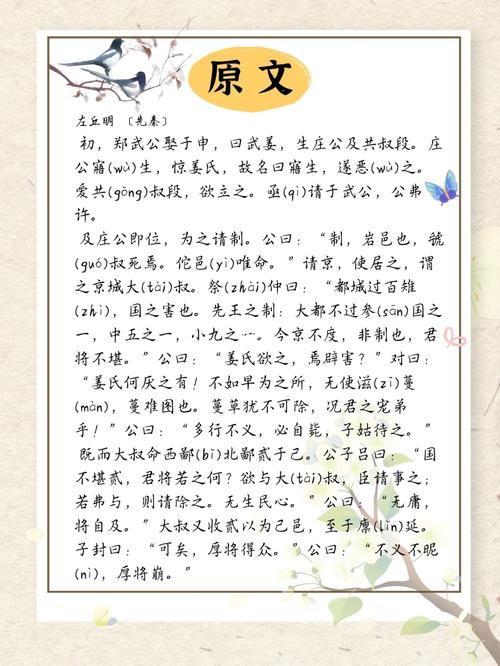 原文
左丘明 〔先秦〕
初，郑武公娶于申，曰武姜，生庄公及共叔段。庄
公寤(wù)生，惊姜氏，故名曰寤生，遂恶(wù)之。
爱共(gōng)叔段，欲立之。亟(qì)请于武公，公弗
许。
及庄公即位，为之请制。公曰：“制，岩邑也，虢
(guó)叔死焉。佗邑(yì)唯命。”请京，使居之，谓
之京城大(tài)叔。祭(zhài)仲曰：“都城过百雉
(zhì)，国之害也。先王之制：大都不过参(sān)国之
一，中五之一，小九之一。今京不度，非制也，君
将不堪。”公曰：“姜氏欲之，焉辟害？”对曰：
“姜氏何厌之有！不如早为之所，无使滋(zī)蔓
(màn)，蔓难图也。蔓草犹不可除，况君之宠弟
乎！”公曰：“多行不义，必自毙，子姑待之。”
既而大叔命西鄙(bǐ)北鄙贰于己。公子吕曰：“国
不堪贰，君将若之何？欲与大(tài)叔，臣请事之；
若弗与，则请除之。无生民心。”公曰：“无庸，
将自及。”大叔又收贰以为己邑，至于廪(lǐn)延。
子封曰：“可矣，厚将得众。”公曰：“不义不昵
(nì)，厚将崩。”